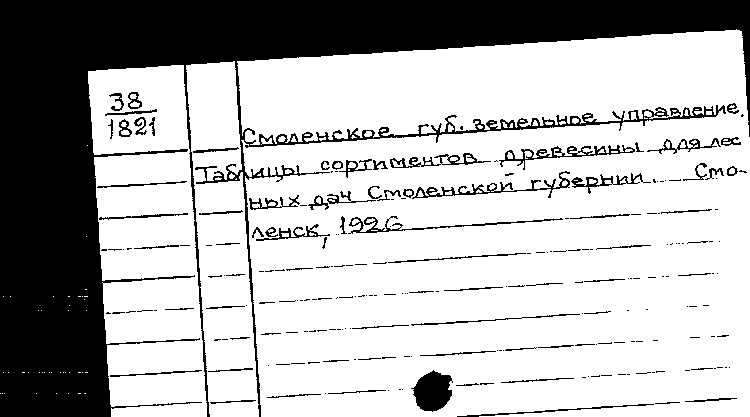 38
1821
Смоленское губ. земельное управление.
Таблицы сортиментов древесины для лес
ных дач Смоленской губернии. Смо-
ленск, 1926